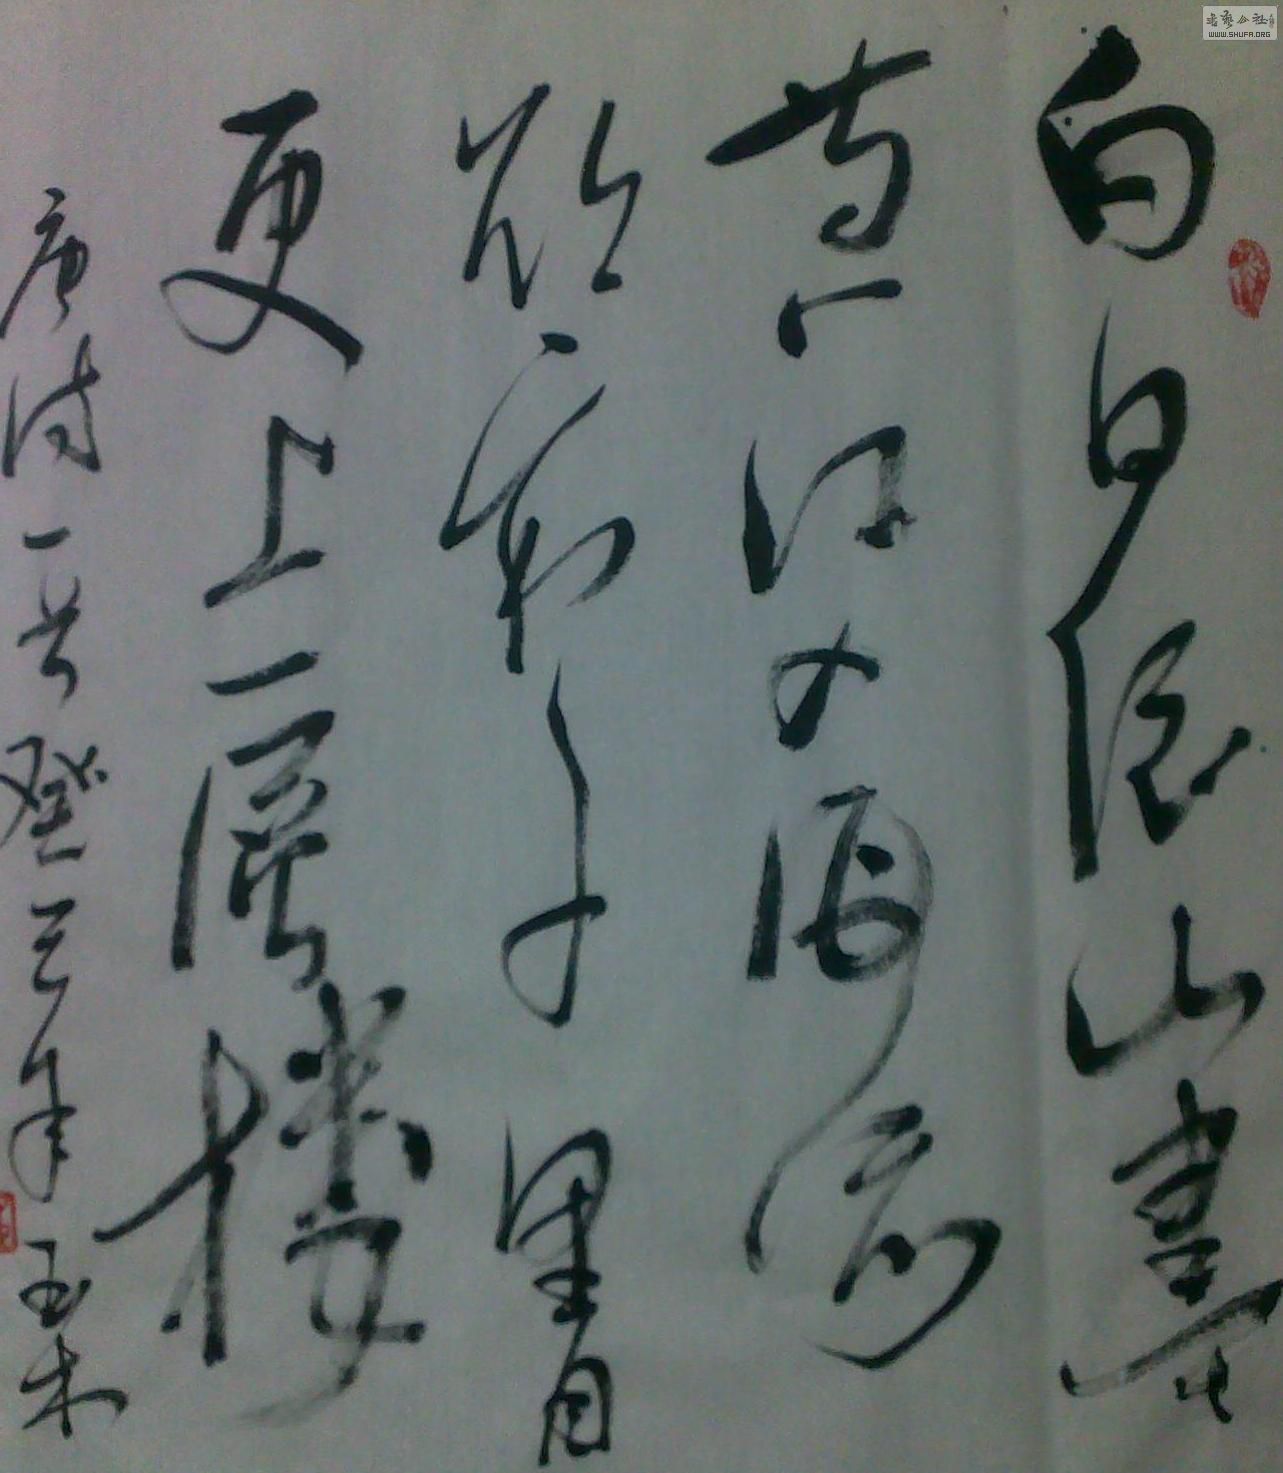 白日依山尽
黄河入海流
欲穷千里目
更上一层楼
唐诗一首癸巳年玉木
书艺公社
WWW.SHUFA.ORG